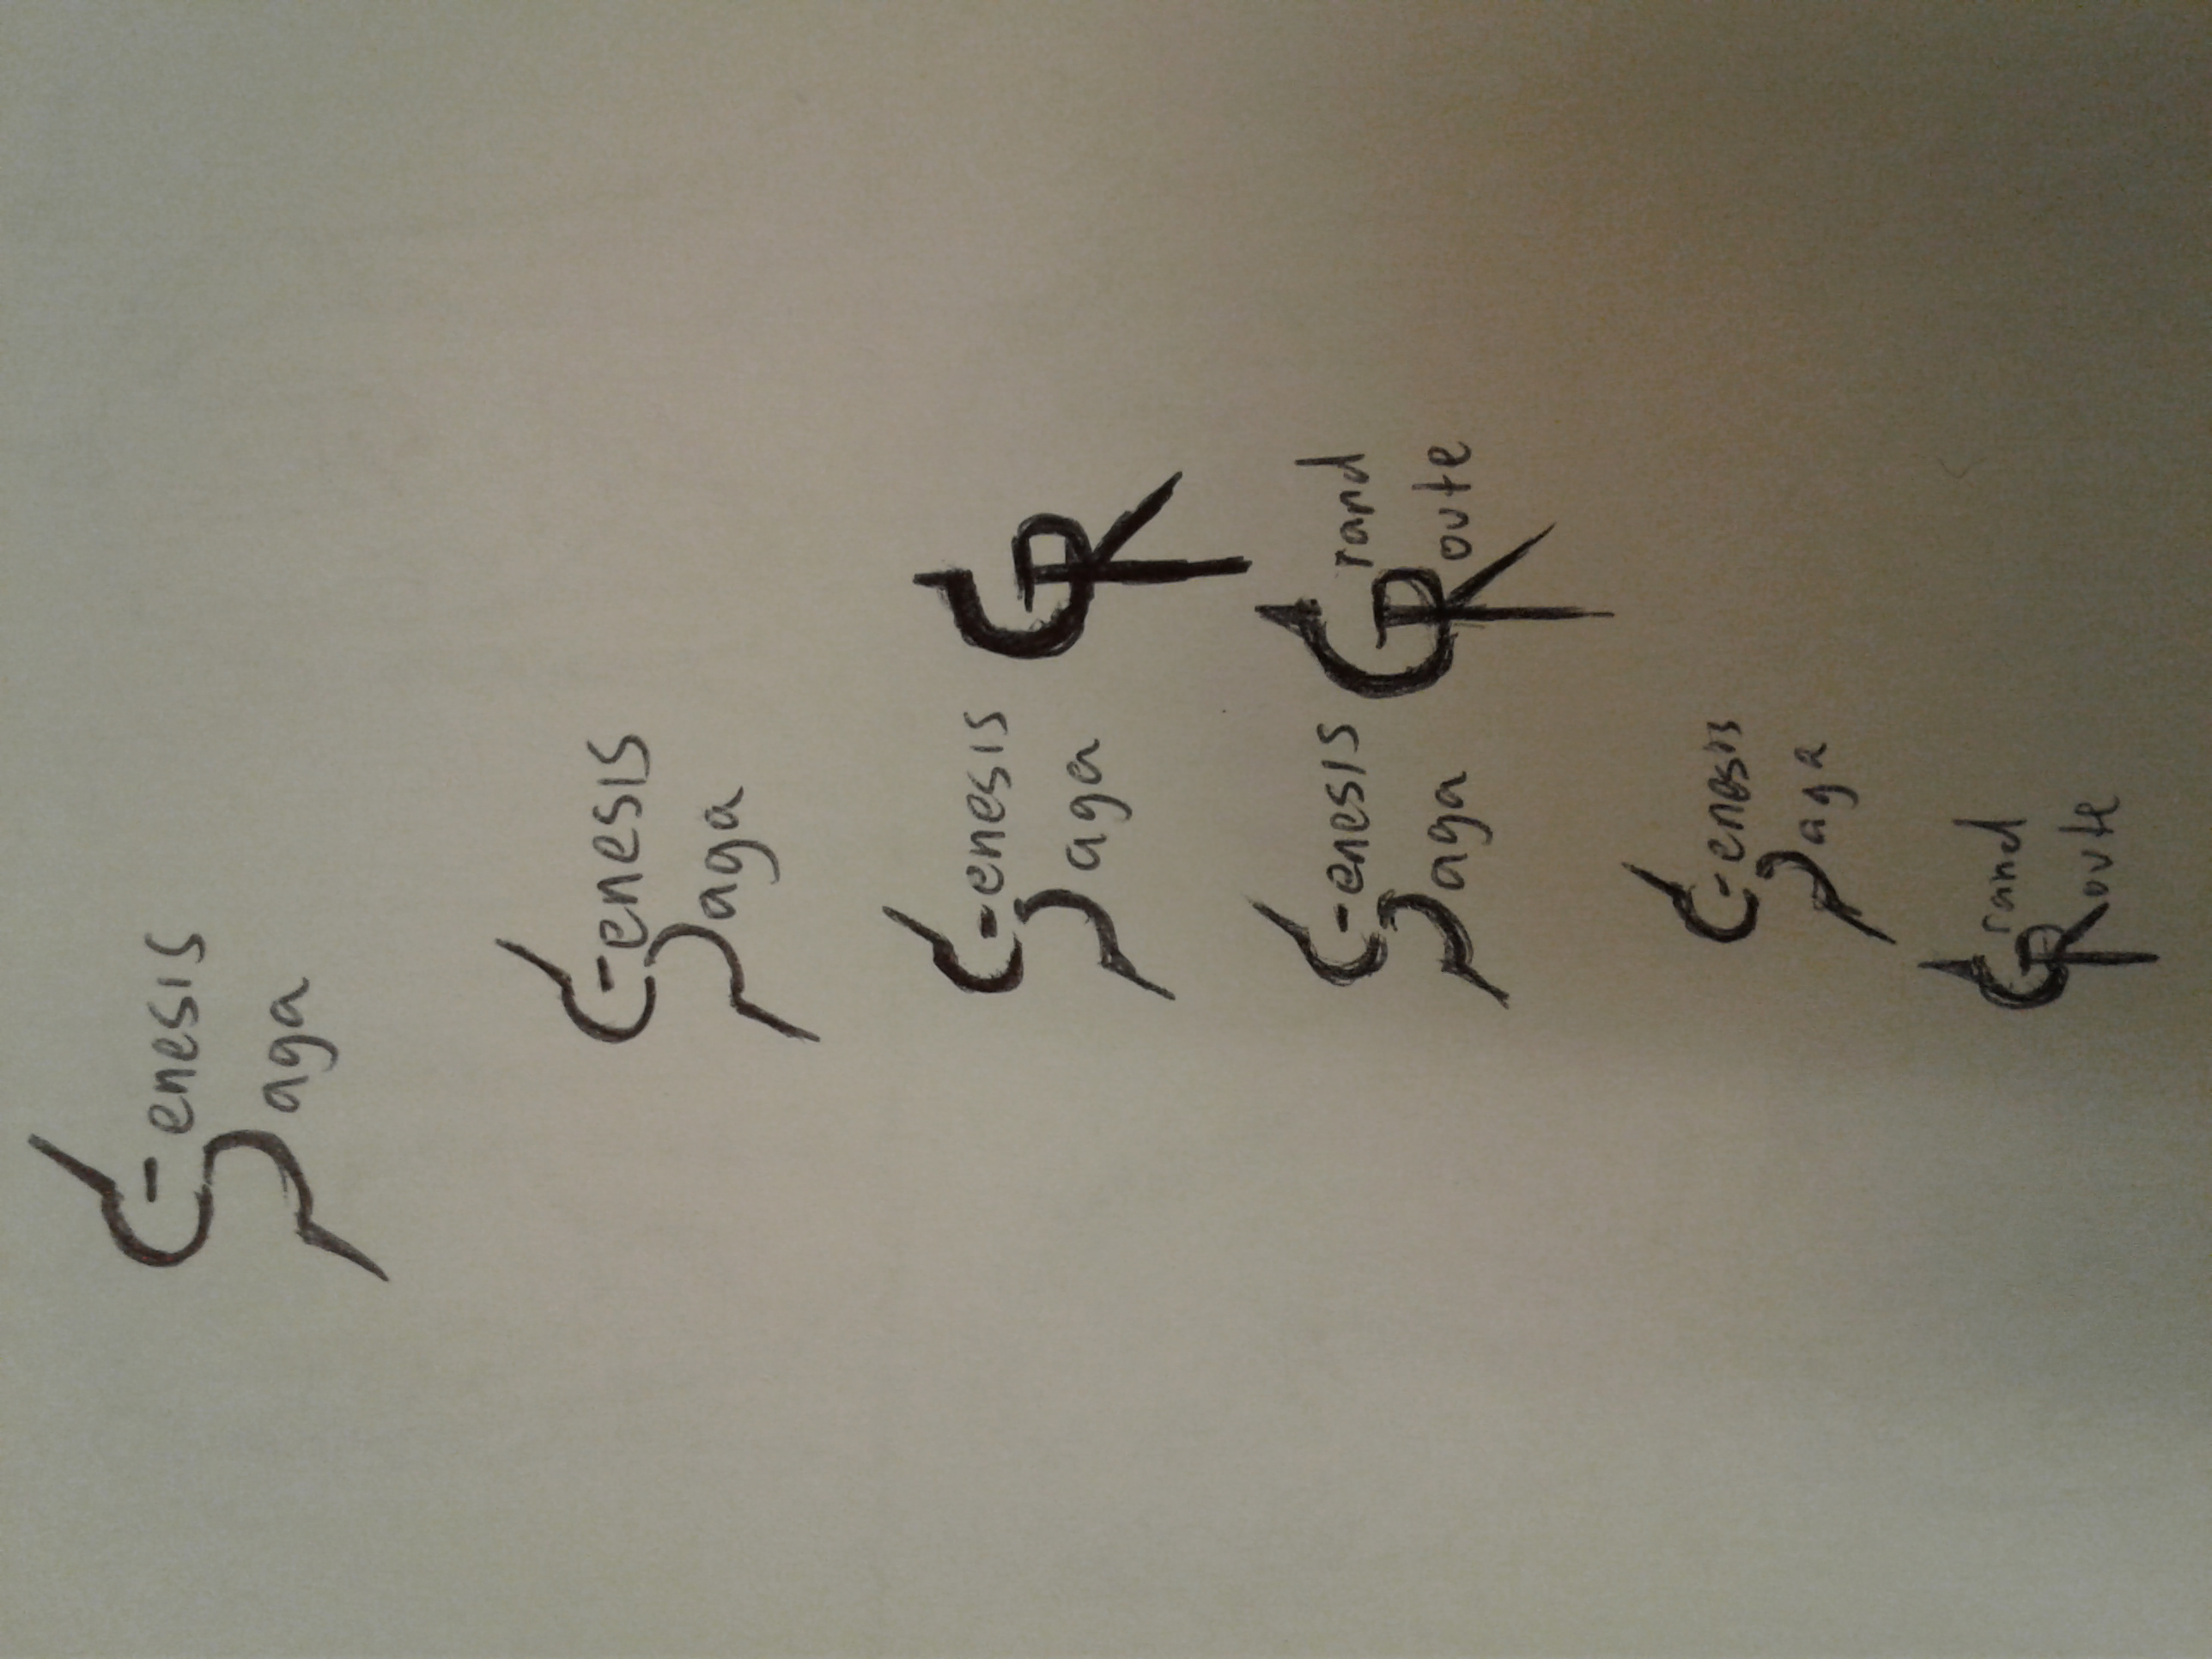 Genesis
Saga
Genesis
Saga
Genesis
Saga
GR
Genesis
Saga
Grand
Route
Genesis
Saga
Grand
Route